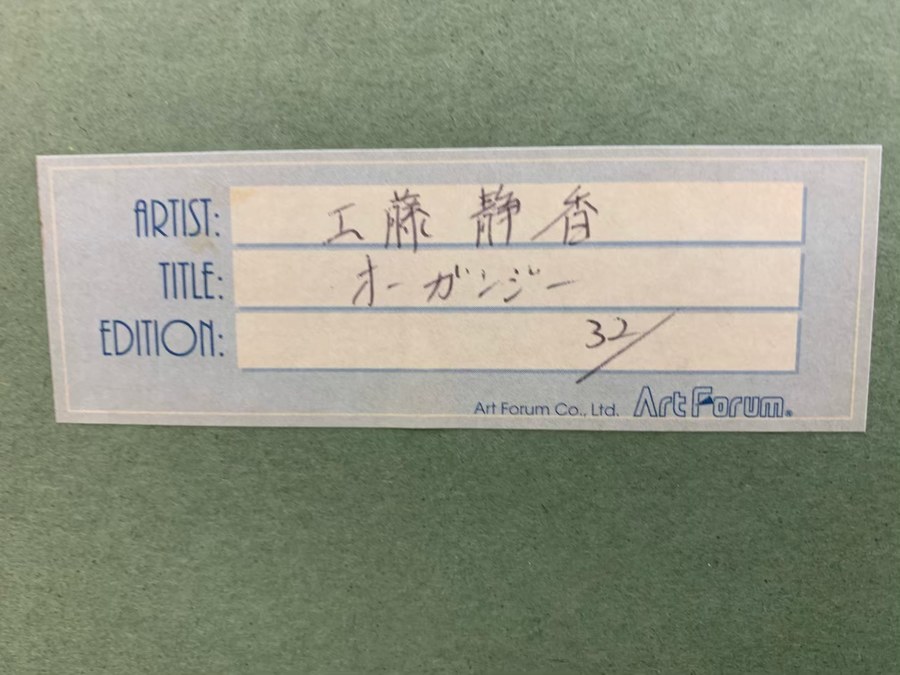 ARTIST: 工藤 静香
TITLE: オーガンジー
EDITION: 32/
Art Forum Co., Ltd. Art Forum®